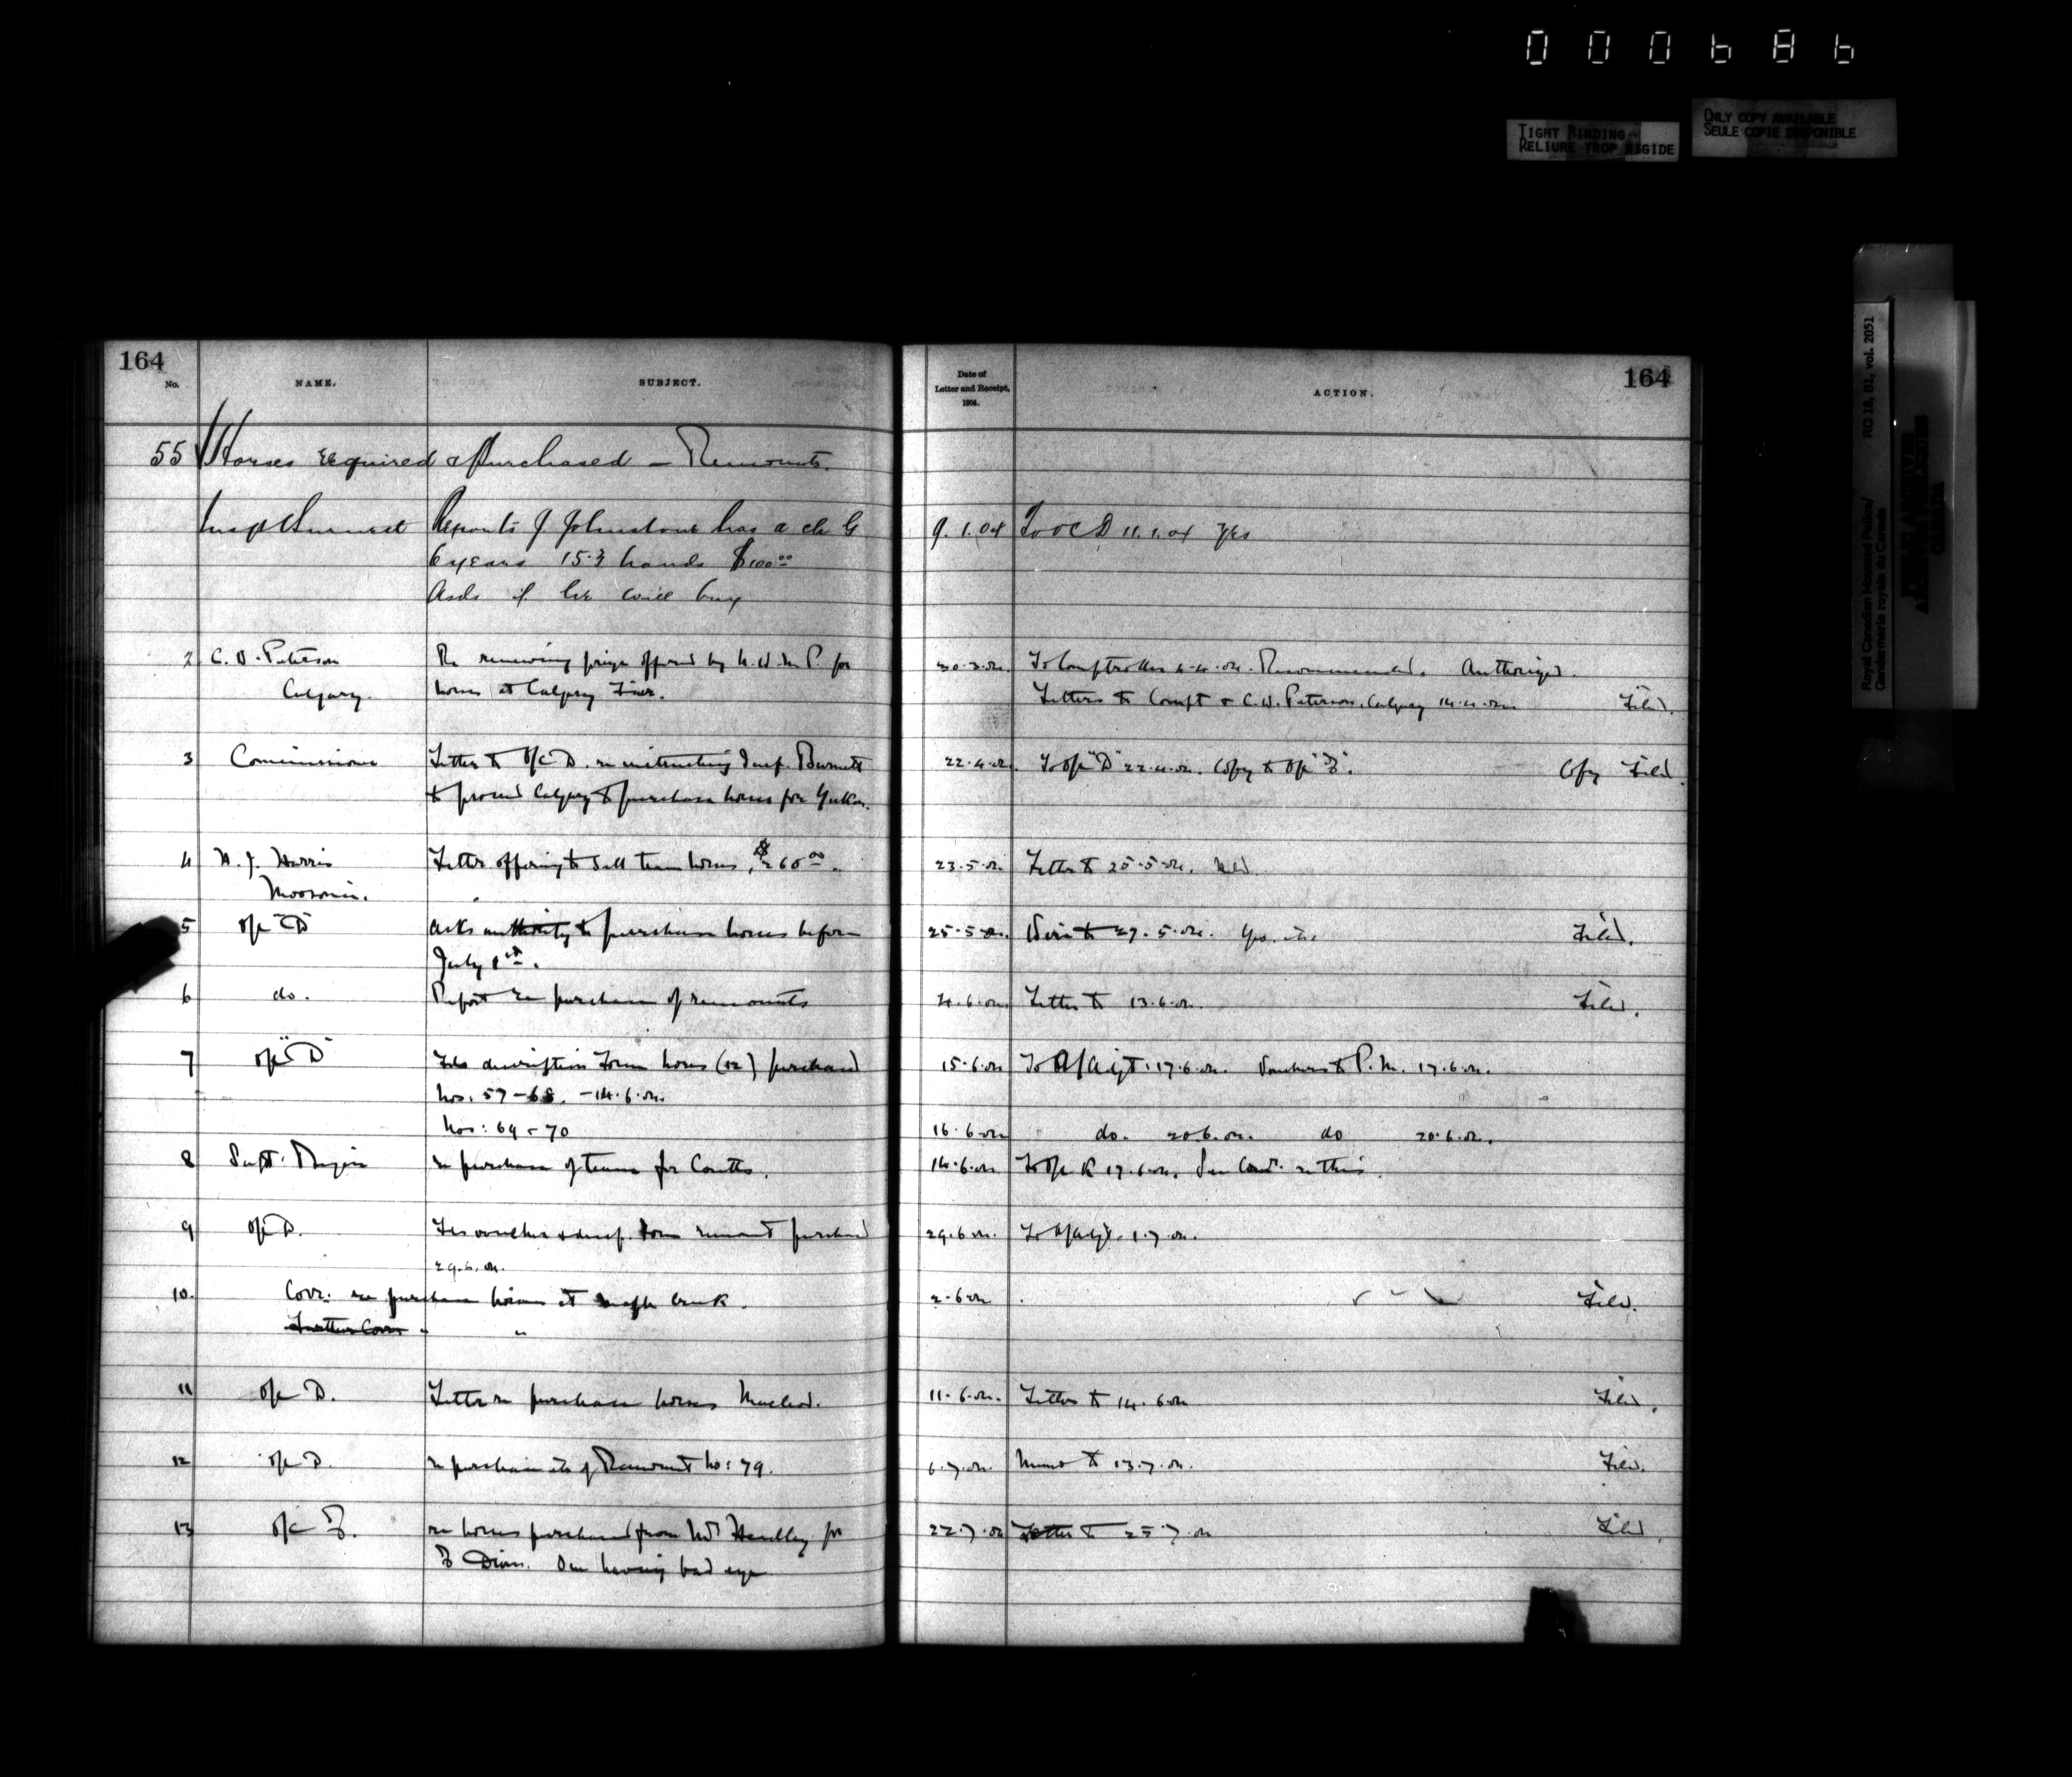 000686
TIGHT BINDING
RELIURE TROP RIGIDE
ONLY COPY AVAILABLE
SEULE COPIE DISPONIBLE
Royal Canadian Mounted Police/
Gendarmerie royale du Canada
RG 18, B1, vol. 2051
PUBLIC ARCHIVES
ARCHIVES PUBLIQUES
CANADA
164
No. NAME. SUBJECT.
Date of
Letter and Receipt,
1904.
ACTION.
164
55 Horses required & Purchased – Remounts.
Insp Burnett Reports J Johnstone has a ch G 9.1.04 To OC D 11.1.04 Yes
6 years 15.3 hands $100.00
Asks if he will buy
2 C. W. Peterson Re renewing prize offered by N.W.M.P. for 30.3.04. To Comptroller 4.4.04. Recommended. Authorized.
Calgary. horses at Calgary Fair. Letters to Compt & C.W. Peterson, Calgary 14.4.04 Filed.
3 Commissioner Letter to O/C D. re instructing Insp. Burnett 22.4.04. To O/C "D" 22.4.04. Copy to O/C "B". Copy Filed.
to proceed Calgary to purchase horses for Yukon.
4 Harris Letter offering to sell team horses, $260.00. 23.5.04 Letter to 25.5.04.
Moosomin.
5 O/C "D" asks authority to purchase horses before 25.5.04. Wire to 27.5.04. Yes. Filed.
July 1st.
6 do. Report re purchase of remounts 4.6.04 Letter to 13.6.04. Filed.
7 O/C "D" Fds description Form horses (12) purchased 15.6.04 To A/Adjt. 17.6.04. Vouchers to P.M. 17.6.04.
Nos. 57-68. – 14.6.04.
Nos: 69 - 70 16.6.04 do. 20.6.04. do 20.6.04.
8 Supt. re purchase of team for Coutts. 14.6.04 To O/C K 17.6.04. re this.
9 O/C D. Fds voucher & descp. form remount purchased 29.6.04. To A/Adjt. 1.7.04.
29.6.04.
10. Corr: re purchase horses at Maple Creek. 2.6.04 Filed.
Further Corr " "
11 O/C D. Letter re purchase horses Macleod. 11.6.04. Letter to 14.6.04 Filed.
12 O/C D. re purchase etc of Remount No: 79. 6.7.04. Memo to 13.7.04. Filed.
13 O/C B. re horses purchased from Handley for 22.7.04 Letter to 25.7.04 Filed.
B Divn. One having bad eye